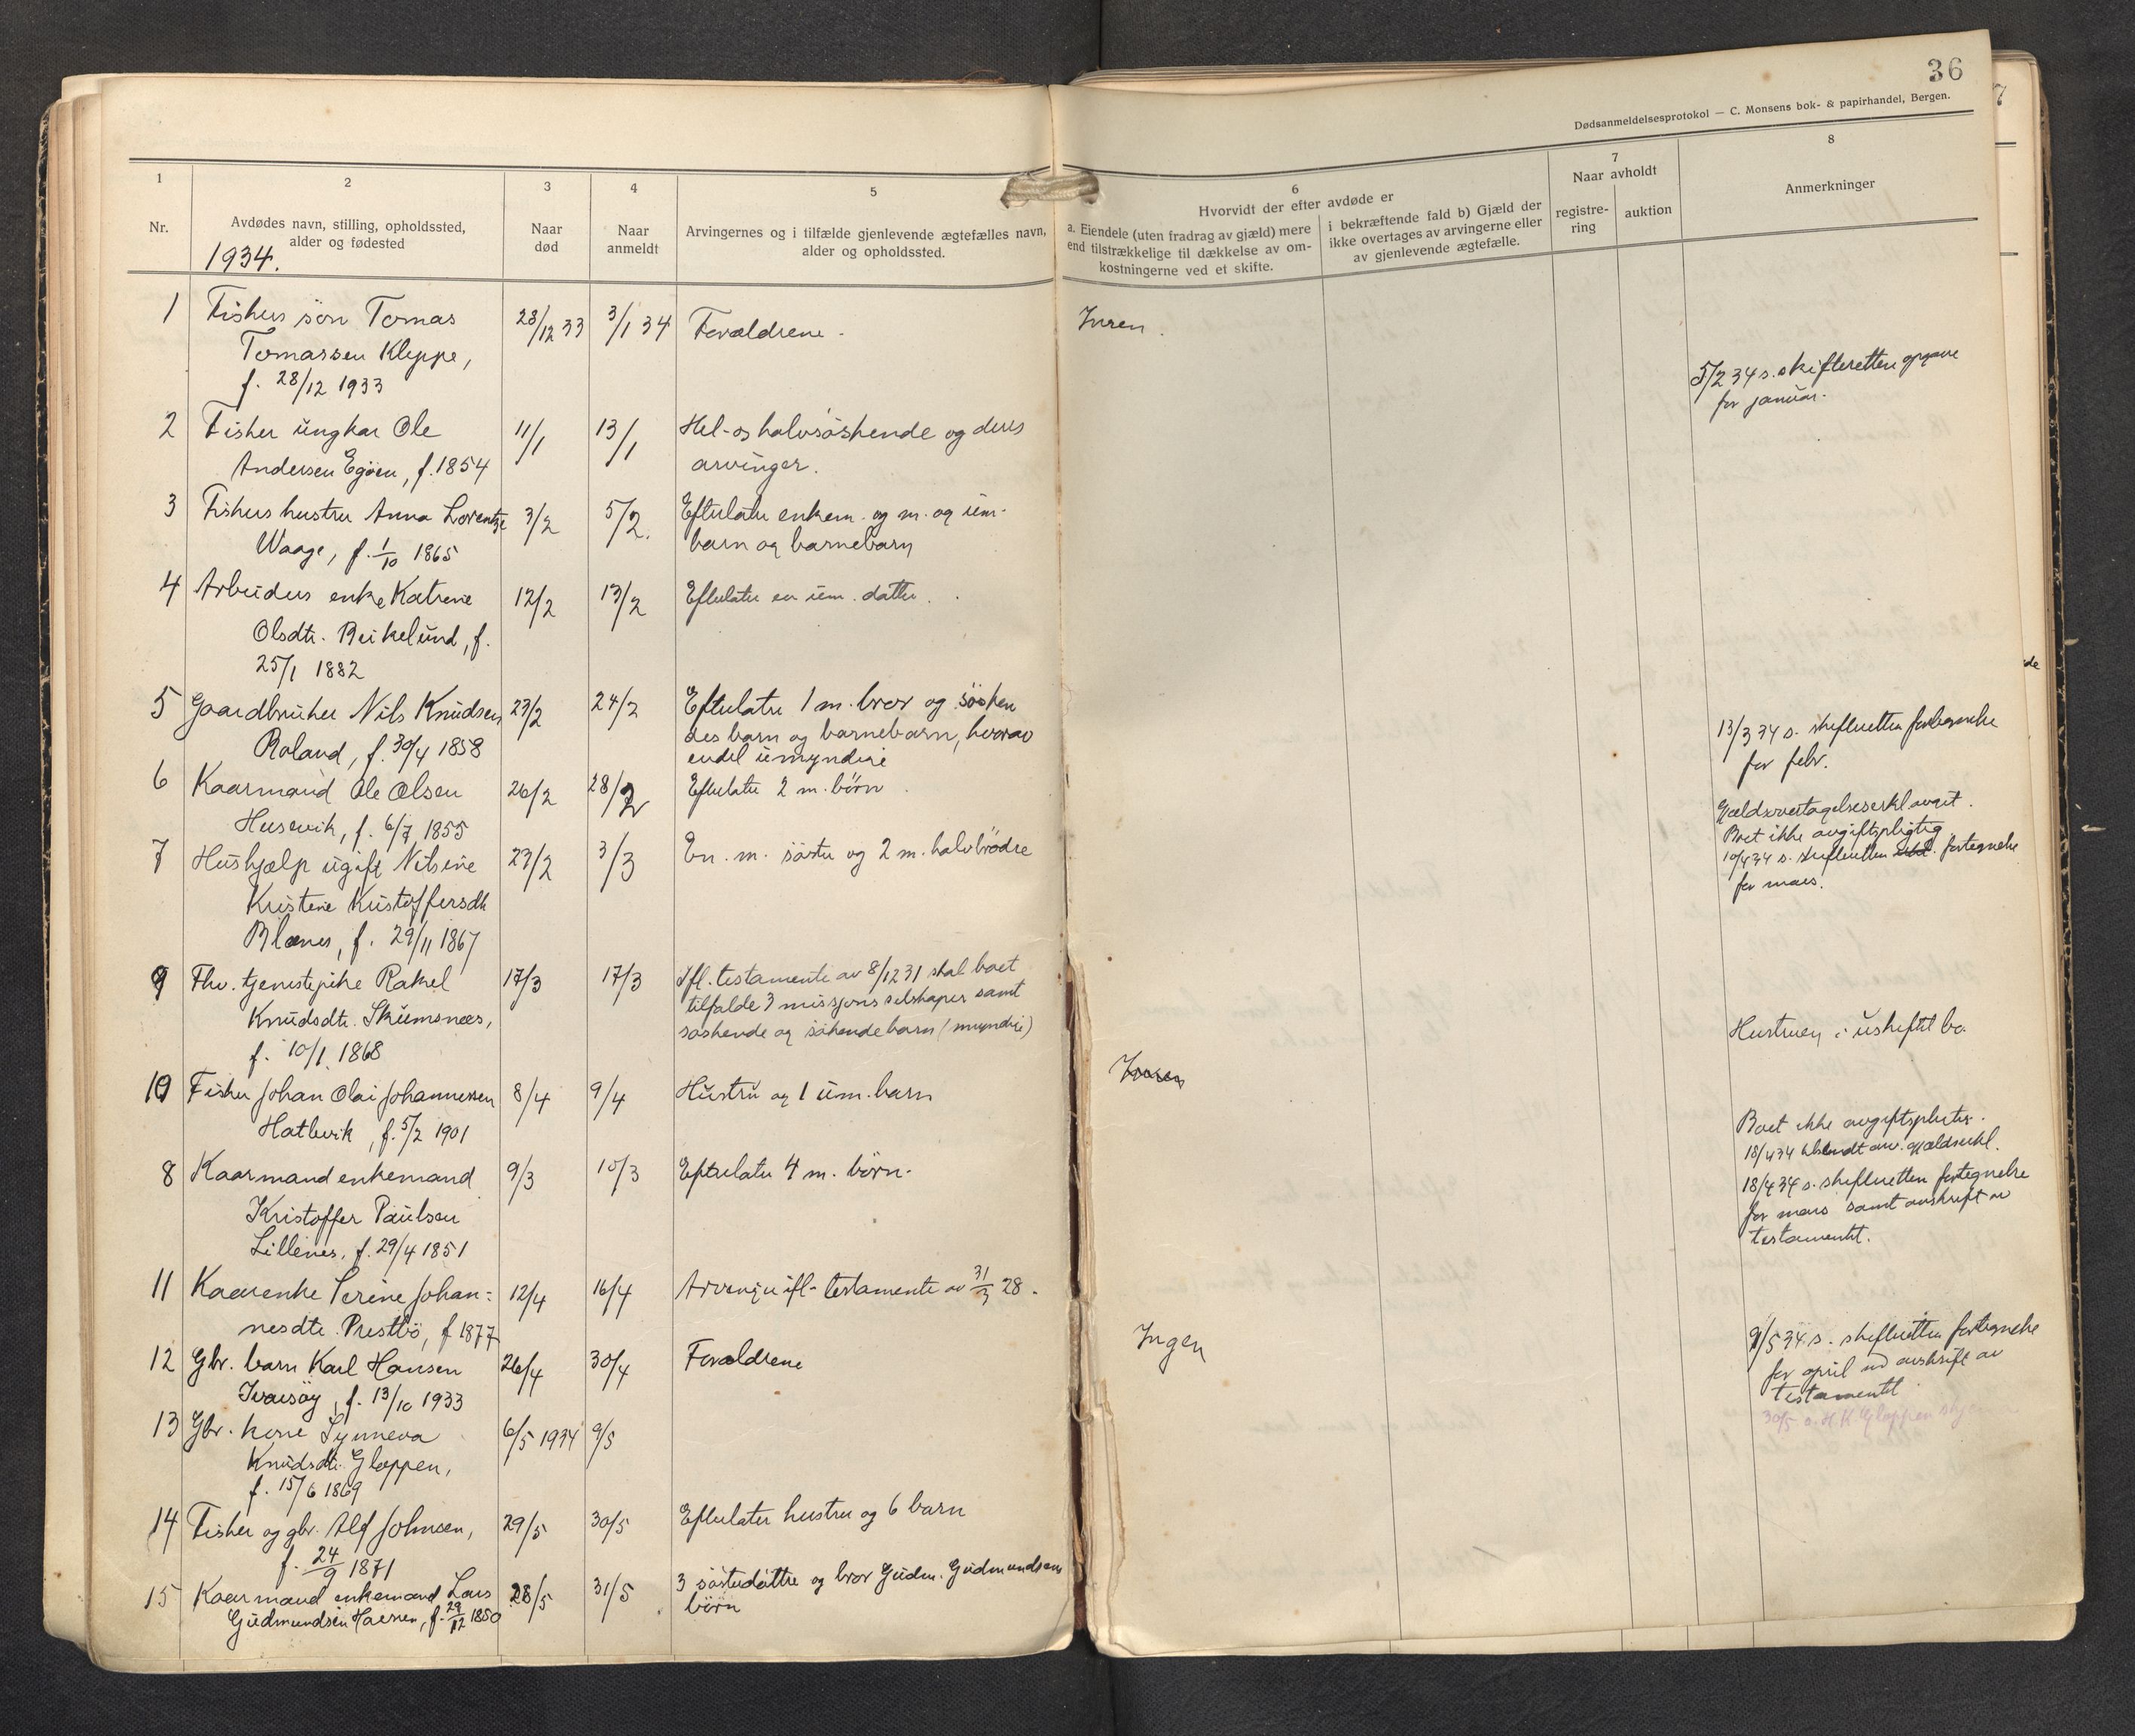 36
Dødsanmeldelsesprotokol — C. Monsens bok- & papirhandel, Bergen.
1
Nr.
2
Avdødes navn, stilling, opholdssted,
alder og fødested
1934.
3
Naar
død
4
Naar
anmeldt
5
Arvingernes og i tilfælde gjenlevende ægtefælles navn,
alder og opholdssted.
6
Hvorvidt der efter avdøde er
a. Eiendele (uten fradrag av gjæld) mere
end tilstrækkelige til dækkelse av om-
kostningerne ved et skifte.
i bekræftende fald b) Gjæld der
ikke overtages av arvingerne eller
av gjenlevende ægtefælle.
7
Naar avholdt
registre-
ring
auktion
8
Anmerkninger
1 Fiskers søn Tomas 28/12 33 3/1 34 Forældrene.
Tomassen Kleppe,
f. 28/12 1933
5/2 34 s. skifteretten opgave
for januar.
2 Fisker ungkar Ole 11/1 13/1 Hel- og halvsøskende og deres
Andersen Egöen, f. 1854 arvinger.
3 Fiskers hustru Anna Lorentze 3/2 5/2. Efterlater enkem. og m. og um.
Waage, f. 1/10 1865 barn og barnebarn
4 Arbeiders enke Katrine 12/2 13/2 Efterlater en um. datter.
Olsdtr. Reikelund, f.
25/1 1882
5 Gaardbruker Nils Knudsen 23/2 24/2 Efterlater 1 m. bror og søsken
Roland, f. 30/4 1858 des barn og barnebarn, hvorav
endel umyndige
13/3 34 s. skifteretten fortegnelse
for febr.
6 Kaarmand Ole Olsen 26/2 28/2 Efterlater 2 m. börn
Husevik, f. 6/7 1855
Gjældsovertagelseserkl. avgit.
Boet ikke avgiftspligtig
7 Hushjælp ugift Nilsine 23/2 3/3 En m. søster og 2 m. halvbrødre
Kristine Kristoffersdtr
Blænes, f. 29/11 1867
10/4 34 s. skifteretten fortegnelse
for mars.
9 Fhv. tjenestepike Rakel 17/3 17/3 Ifl. testamente av 8/12 31 skal boet
Knudsdtr. Skumsnes, tilfalde 3 missjons selskaper samt
f. 10/1 1868 søskende og søskendebarn (myndige)
Hustruen i uskiftet bo.
10 Fisker Johan Olai Johannessen 8/4 9/4 Hustru og 1 um. barn
Hatlevik, f. 5/2 1901
Boet ikke avgiftspligtig.
8 Kaarmand enkemand 9/3 10/3 Efterlater 4 m. börn.
Kristoffer Paulsen
Lillenes, f. 29/4 1851
18/4 34 s. skifteretten fortegnelse
for mars samt avskrift av
testamentet.
11 Kaarenke Serine Johan- 12/4 16/4 Arvinger ifl. testamente av 31/3 28.
nesdtr. Prestbø, f 1877
12 Gbr. barn Karl Hansen 26/4 30/4 Forældrene Ingen
f. 13/10 1933
9/5 34 s. skifteretten fortegnelse
for april avskrift av
testamentet
13 Gbr. kone Synneva 6/5 1934 9/5
Knudsdtr. Gloppen,
f. 15/6 1869
14 Fisker og gbr. Alf Johnsen, 29/5 30/5 Efterlater hustru og 6 barn
f. 24/9 1871
15 Kaarmand enkemand Lars 28/5 31/5 3 søsterdøttre og bror Gudm. Gudmundsens
Gudmundsen f. 29/12 1850 børn